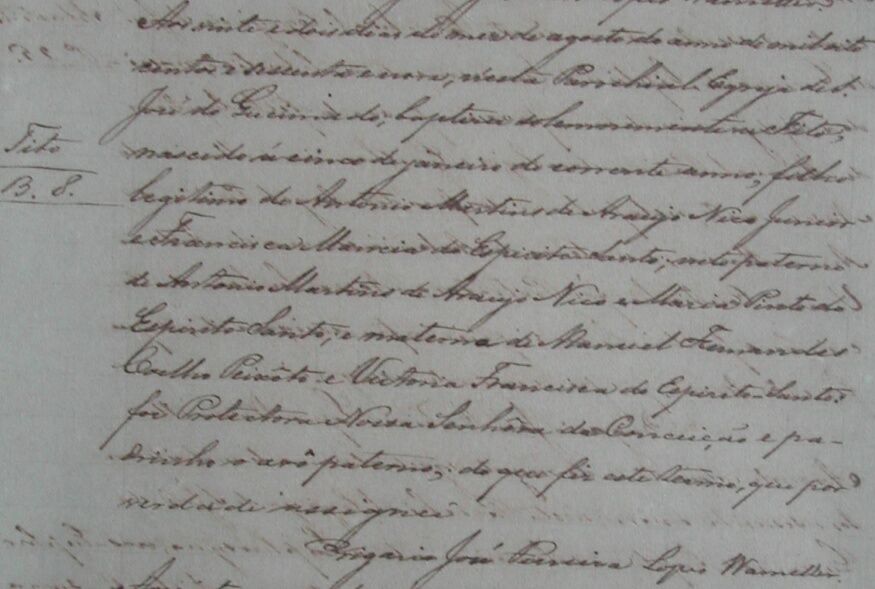 Aos vinte e dois dias do mez de agosto do anno de mil oito
centos e sessenta e nove, nesta Parochial Egreja de S.
José do baptizei solemnemente a Tito,
nascido á cinco de janeiro do corrente anno, filho
legitimo de Antonio Martins de Araujo Nico Junior
e Francisca Marcia do Espirito Santo, neto paterno
de Antonio Martins de Araujo Nico e Maria Pinto do
Espirito Santo, e materno de Manoel Fernandes
Coelho Peixôto e Victoria Francisca do Espirito Santo:
foi Protectora Nossa Senhôra da Conceição e pa-
drinho o avô paterno; do que fiz este termo, que por
verdade assignei
José Pereira Lopes
Tito
B. 8.